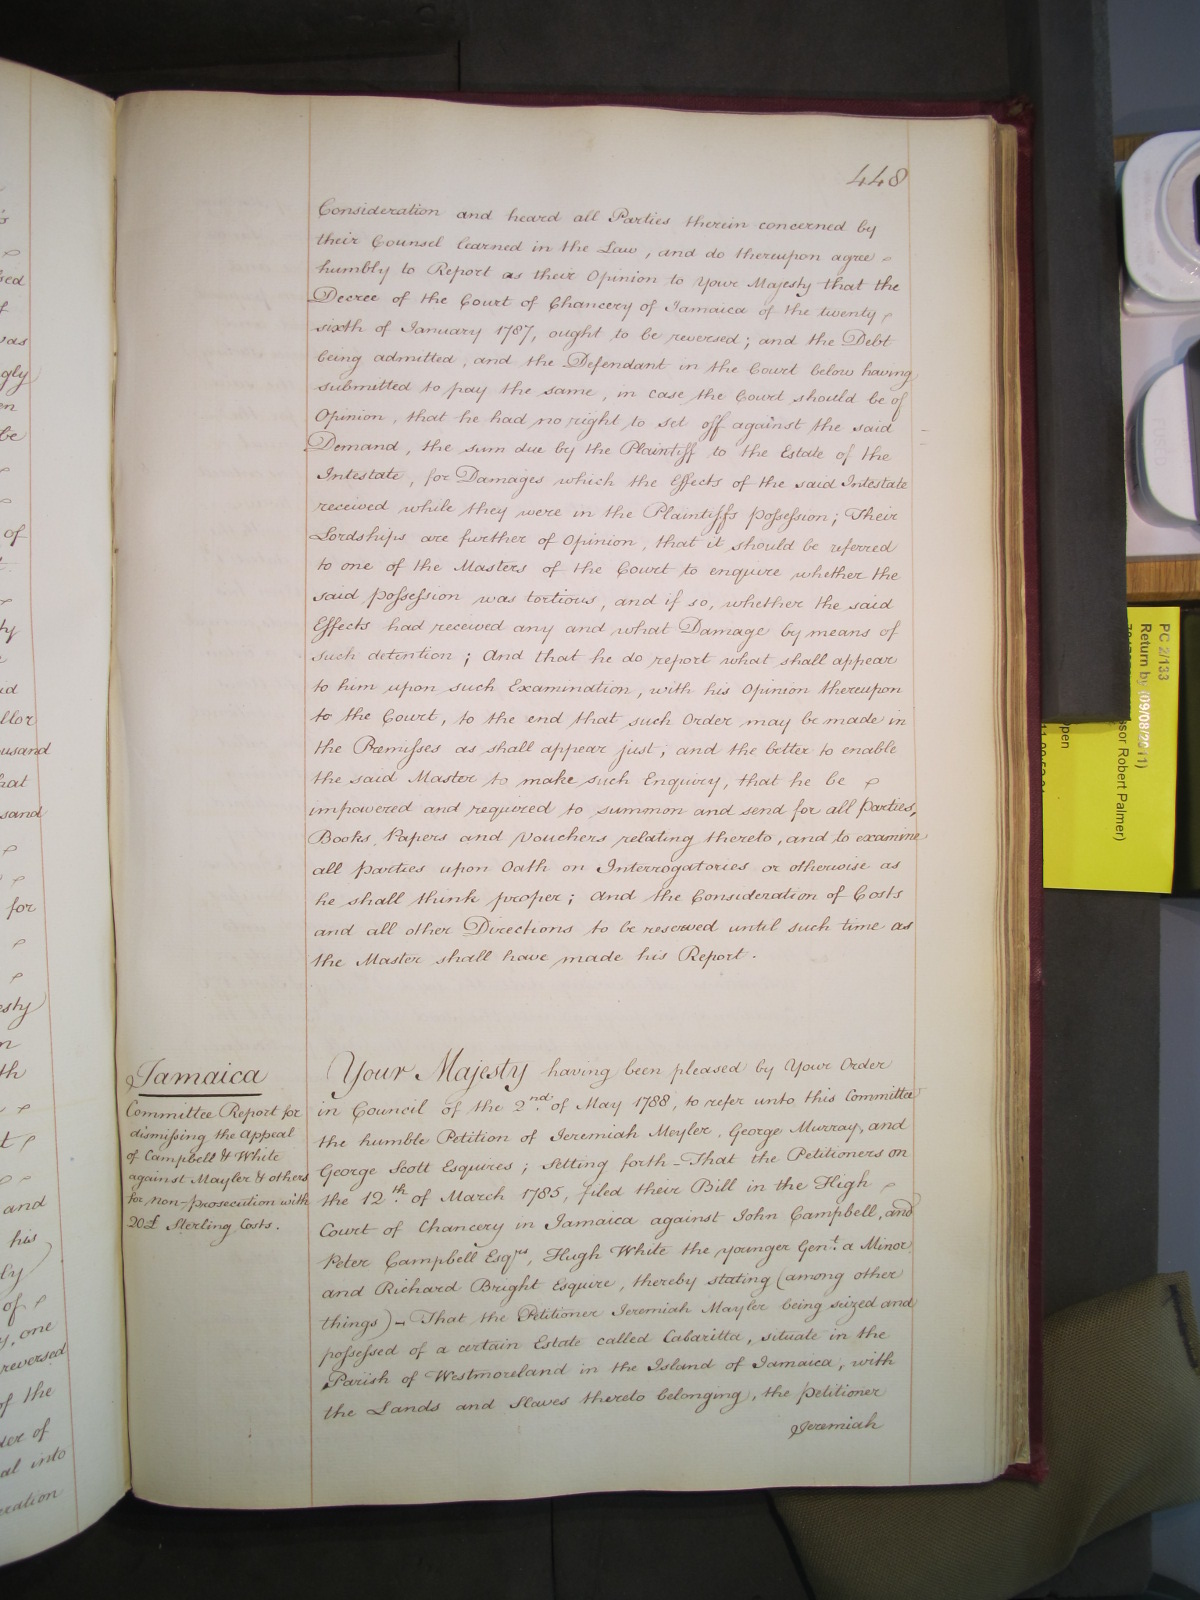 448
Consideration and heard all Parties therein concerned by
their Counsel learned in the Law, and do thereupon agree
humbly to Report as their Opinion to Your Majesty that the
Decree of the Court of Chancery of Jamaica of the twenty
sixth of January 1787, ought to be reversed; and the Debt
being admitted, and the Defendant in the Court below having
submitted to pay the same, in case the Court should be of
Opinion, that he had no right to set off against the said
Demand, the sum due by the Plaintiff to the Estate of the
Intestate, for Damages which the Effects of the said Intestate
received while they were in the Plaintiffs possession; Their
Lordships are further of Opinion, that it should be referred
to one of the Masters of the Court to enquire whether the
said possession was tortious, and if so, whether the said
Effects had received any and what Damage by means of
such detention; And that he do report what shall appear
to him upon such Examination, with his Opinion thereupon
to the Court, to the end that such Order may be made in
the Premisses as shall appear just; and the better to enable
the said Master to make such Enquiry, that he be
impowered and required to summon and send for all Parties,
Books, Papers and Vouchers relating thereto, and to examine
all parties upon Oath on Interrogatories or otherwise as
he shall think proper; And the Consideration of Costs
and all other Directions to be reserved until such time as
the Master shall have made his Report.
Jamaica
Committee Report for
dismissing the Appeal
of Campbell & White
against Mayler & others
for non-prosecution with
20£ Sterling Costs.
Your Majesty having been pleased by Your Order
in Council of the 2nd. of May 1788, to refer unto this Committee
the humble Petition of Jeremiah Meyler, George Murray, and
George Scott Esquires; Setting forth - That the Petitioners on
the 12th. of March 1785, filed their Bill in the High
Court of Chancery in Jamaica against John Campbell, and
Peter Campbell Esqrs, Hugh White the younger Gent. a Minor
and Richard Bright Esquire, thereby stating (among other
things) - That the Petitioner Jeremiah Mayler being seized and
possessed of a certain Estate called Cabaritta, situate in the
Parish of Westmoreland in the Island of Jamaica, with
the Lands and Slaves thereto belonging, the petitioner
Jeremiah
PC 2/133
Return by (09/08/2011)
ssor Robert Palmer)
pen